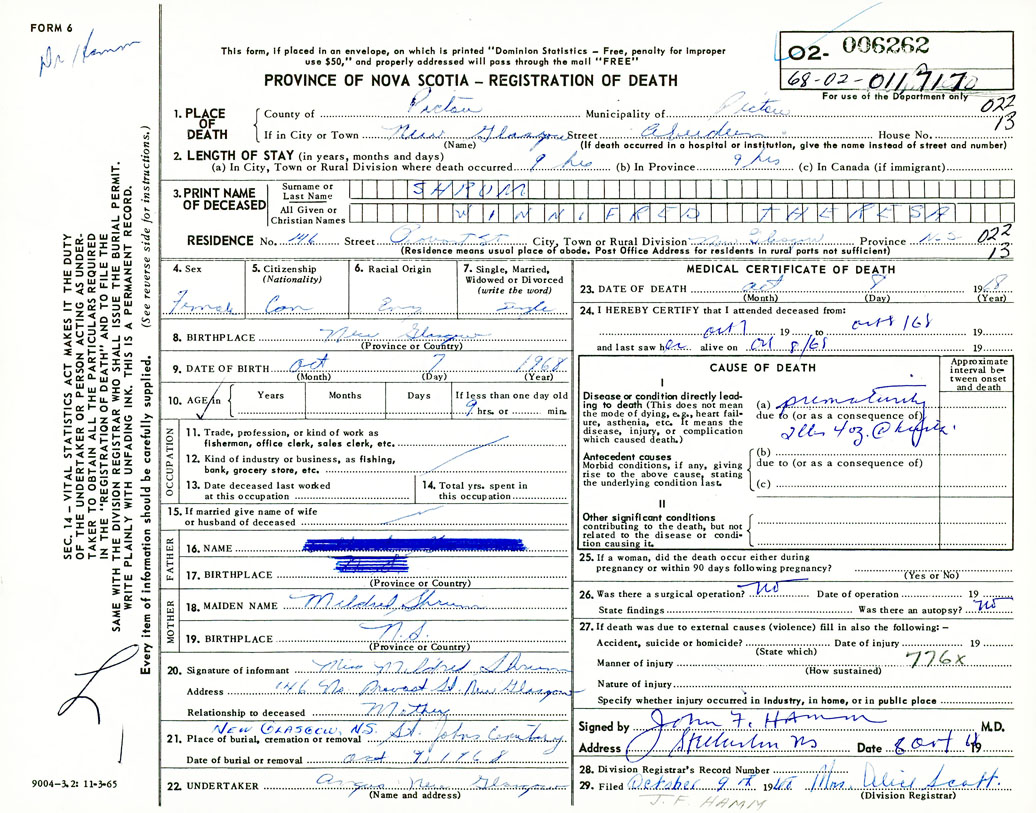 FORM 6
Dr Hamm
This form, if placed in an envelope, on which is printed "Dominion Statistics – Free, penalty for improper
use $50," and properly addressed will pass through the mail "FREE"
PROVINCE OF NOVA SCOTIA – REGISTRATION OF DEATH
O2- 006262
68-02-
For use of the Department only
022
13
1. PLACE OF DEATH
County of Pictou Municipality of Pictou
If in City or Town New Glasgow Street Aberdeen House No.
(Name) (If death occurred in a hospital or institution, give the name instead of street and number)
2. LENGTH OF STAY (in years, months and days)
(a) In City, Town or Rural Division where death occurred 9 hrs (b) In Province 9 hrs (c) In Canada (if immigrant)
3. PRINT NAME OF DECEASED
Surname or Last Name SHRUM
All Given or Christian Names WINNIFRED THERESA
RESIDENCE No. 146 Street Provost St City, Town or Rural Division New Glasgow Province N.S
(Residence means usual place of abode. Post Office Address for residents in rural ports not sufficient)
022
13
4. Sex
Female
5. Citizenship
(Nationality)
Can
6. Racial Origin
Eng
7. Single, Married,
Widowed or Divorced
(write the word)
Single
8. BIRTHPLACE New Glasgow
(Province or Country)
9. DATE OF BIRTH Oct 7 1968
(Month) (Day) (Year)
10. AGE in
Years Months Days If less than one day old
9 hrs. or min.
OCCUPATION
11. Trade, profession, or kind of work as
fishermen, office clerk, sales clerk, etc.
12. Kind of industry or business, as fishing,
bank, grocery store, etc.
13. Date deceased last worked
at this occupation
14. Total yrs. spent in
this occupation
15. If married give name of wife
or husband of deceased
FATHER
16. NAME
17. BIRTHPLACE
(Province or Country)
MOTHER
18. MAIDEN NAME Mildred Shrum
19. BIRTHPLACE N.S.
(Province or Country)
20. Signature of informant Miss Mildred Shrum
Address 146 No. Provost St. New Glasgow
Relationship to deceased Mother
NEW GLASGOW, N.S.
21. Place of burial, cremation or removal St. Johns Cemetery
Date of burial or removal Oct 9, 1968
22. UNDERTAKER New Glasgow
(Name and address)
MEDICAL CERTIFICATE OF DEATH
23. DATE OF DEATH Oct 8 1968
(Month) (Day) (Year)
24. I HEREBY CERTIFY that I attended deceased from:
Oct 7 19 to Oct 8/68 19
and last saw her alive on Oct 8/68 19
CAUSE OF DEATH
Approximate
interval be-
tween onset
and death
I
Disease or condition directly lead-
ing to death (This does not mean
the mode of dying, e.g., heart fail-
ure, asthenia, etc. It means the
disease, injury, or complication
which caused death.)
(a) prematurity
due to (or as a consequence of)
2 lbs 4 oz. @
Antecedent causes
Morbid conditions, if any, giving
rise to the above cause, stating
the underlying condition last.
(b)
due to (or as a consequence of)
(c)
II
Other significant conditions
contributing to the death, but not
related to the disease or condi-
tion causing it.
25. If a woman, did the death occur either during
pregnancy or within 90 days following pregnancy?
(Yes or No)
26. Was there a surgical operation? No Date of operation 19
State findings Was there an autopsy? No
27. If death was due to external causes (violence) fill in also the following: –
Accident, suicide or homicide? Date of injury 19
(State which)
776x
Manner of injury
(How sustained)
Nature of injury
Specify whether injury occurred in industry, in home, or in public place
Signed by John F. HAMM M.D.
Address Stellarton NS Date 8 Oct 19
28. Division Registrar's Record Number
29. Filed October 9th 19 Mrs. Alice Scott.
(Division Registrar)
J. F. HAMM
SEC. 14 – VITAL STATISTICS ACT MAKES IT THE DUTY
OF THE UNDERTAKER OR PERSON ACTING AS UNDER-
TAKER TO OBTAIN ALL THE PARTICULARS REQUIRED
IN THE "REGISTRATION OF DEATH" AND TO FILE THE
SAME WITH THE DIVISION REGISTRAR WHO SHALL ISSUE THE BURIAL PERMIT.
WRITE PLAINLY WITH UNFADING INK. THIS IS A PERMANENT RECORD.
Every item of information should be carefully supplied. (See reverse side for instructions.)
9004-3.2: 11-3-65